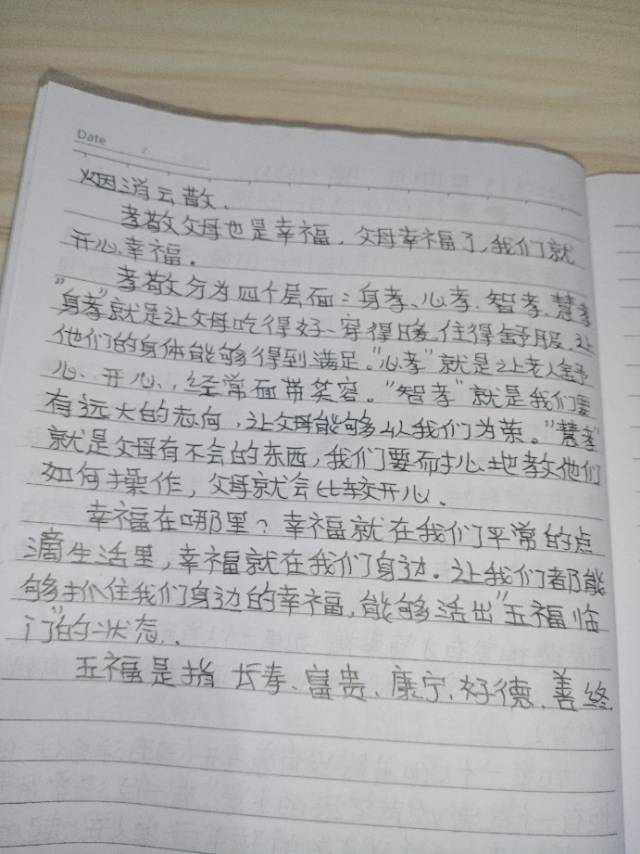 Date
烟消云散。
孝敬父母也是幸福，父母幸福了，我们就
开心幸福。
孝敬分为四个层面：身孝、心孝、智孝、慧孝
"身孝"就是让父母吃得好、穿得暖、住得舒服，让
他们的身体能够得到满足。"心孝"就是让老人舒
心、开心，经常面带笑容。"智孝"就是我们要
有远大的志向，让父母能够以我们为荣。"慧孝"
就是父母有不会的东西，我们要耐心地教他们
如何操作，父母就会比较开心。
幸福在哪里？幸福就在我们平常的点
滴生活里，幸福就在我们身边。让我们都能
够抓住我们身边的幸福，能够活出"五福临
门"的状态。
五福是指 长寿、富贵、康宁、好德、善终